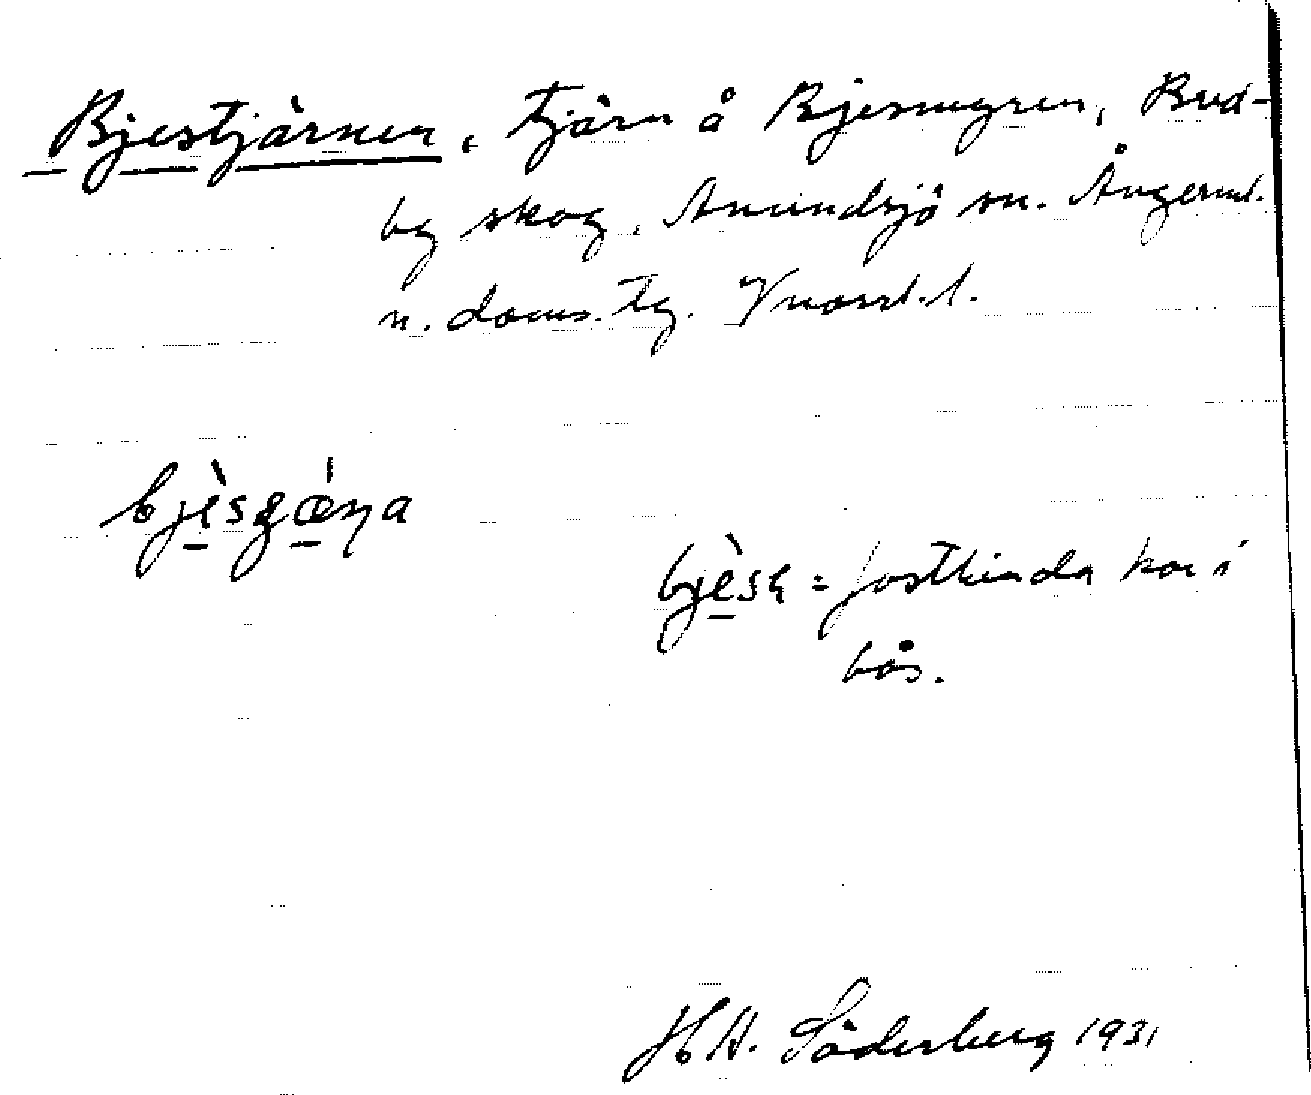 Bjestjärnen, tjärn å Bjesmyren, Bred-
by skog, Anundsjö sn. Ångerml.
n. doms. tg. Vnorrl. l.
bjè̱sʒœ̱́ṇa
bjè̱sʒ = fastbinda kor i
bås.
H. A. Söderberg 1931